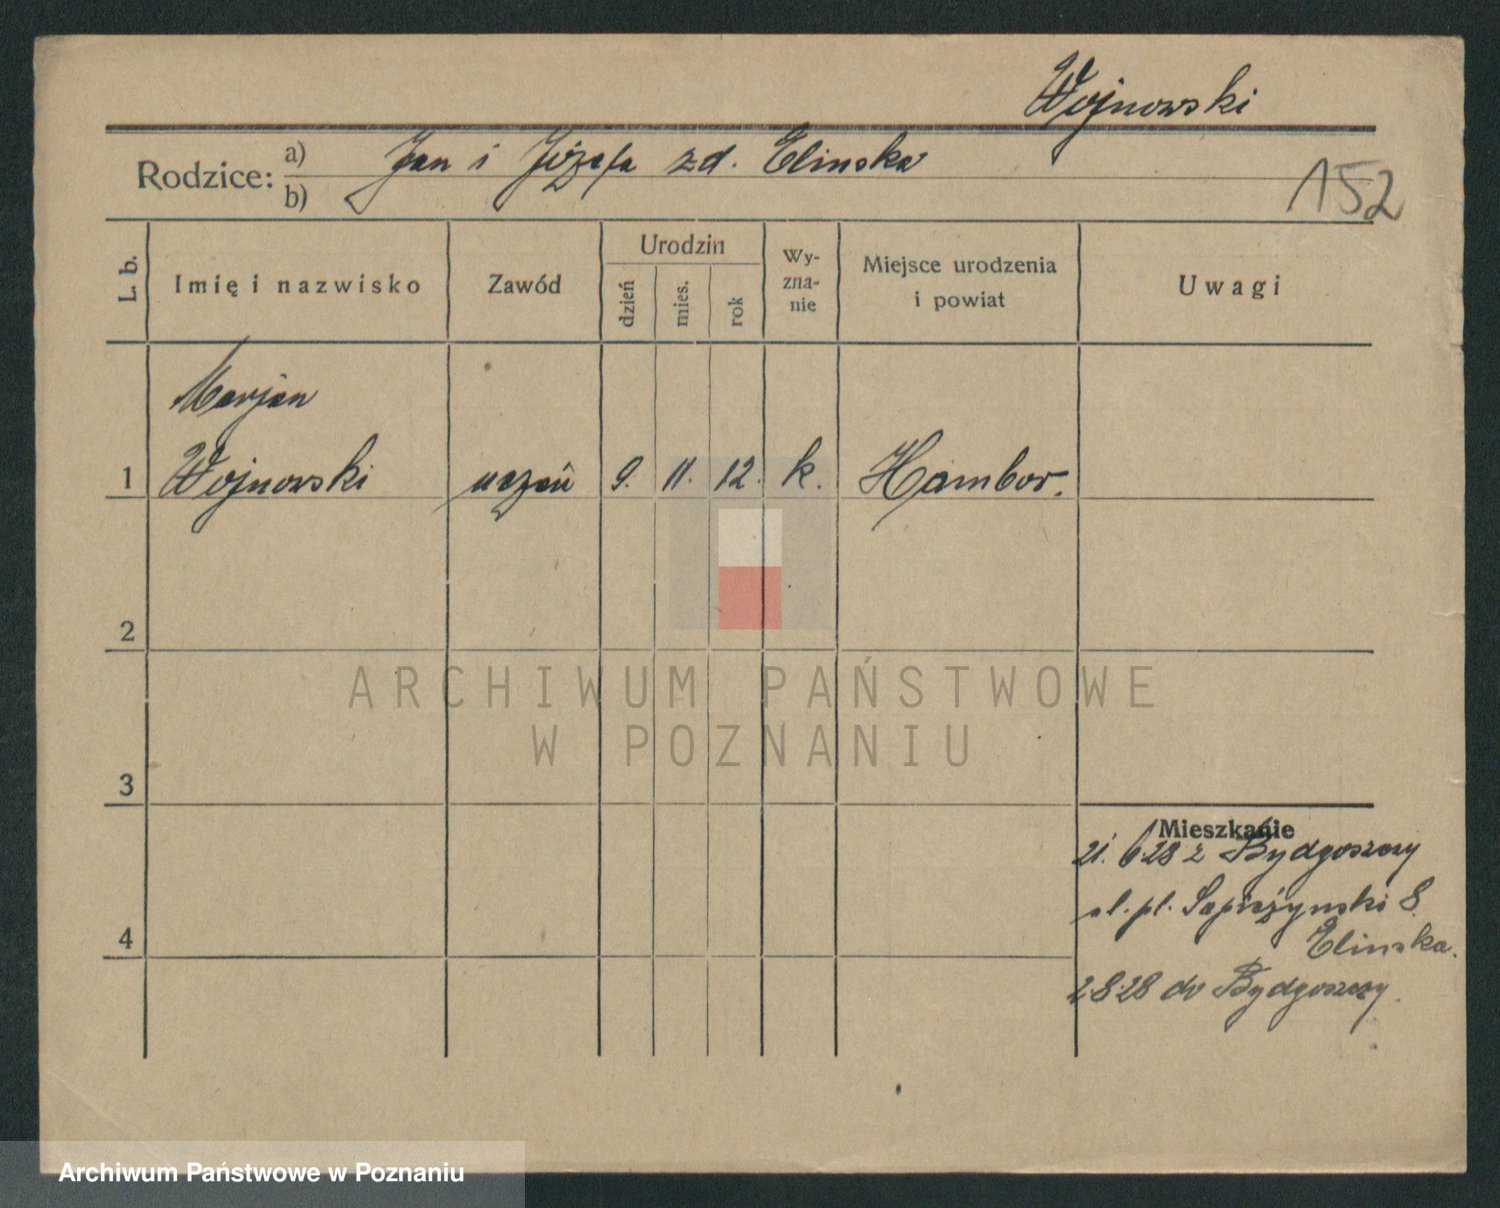 Wojnowski
Rodzice: a) Jan i Józefa zd. Elinska
b)
152
L. b.
Imię i nazwisko
Zawód
Urodzin
dzień
mies.
rok
Wy-
zna-
nie
Miejsce urodzenia
i powiat
Uwagi
Marjan
1 Wojnowski uczeń 9. 11. 12. k. Hambor.
2
ARCHIWUM PAŃSTWOWE
W POZNANIU
3
Mieszkanie
21. 6 28 z Bydgoszczy
pl. Sapieżynski 8.
4
Elinska.
2.8.28 do Bydgoszczy.
Archiwum Państwowe w Poznaniu